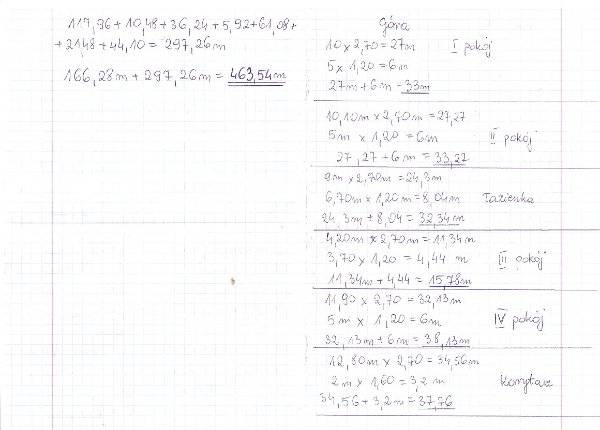 117,96+10,48+36,24+5,92+61,08+
+21,48+44,10= 297,26m
166,28m+297,26m= 463,54m
Góra
10 x 2,70=27m I pokój
5 x 1,20=6m
27m+6m=33m
10,10m x 2,70m=27,27
5m x 1,20=6m II pokój
27,27+6m=33,27
9m x 2,70m=24,3m
6,70m x 1,20m=8,04m Łazienka
24,3m+8,04=32,34m
4,20m x 2,70m=11,34m
3,70 x 1,20 = 4,44 m III pokój
11,34m+4,44=15,78m
11,90 x 2,70=32,13m
5m x 1,20=6m IV pokój
32,13m+6m=38,13m
12,80m x 2,70=34,56m
2m x 1,60=3,2m Korytarz
34,56+3,2m=37,76